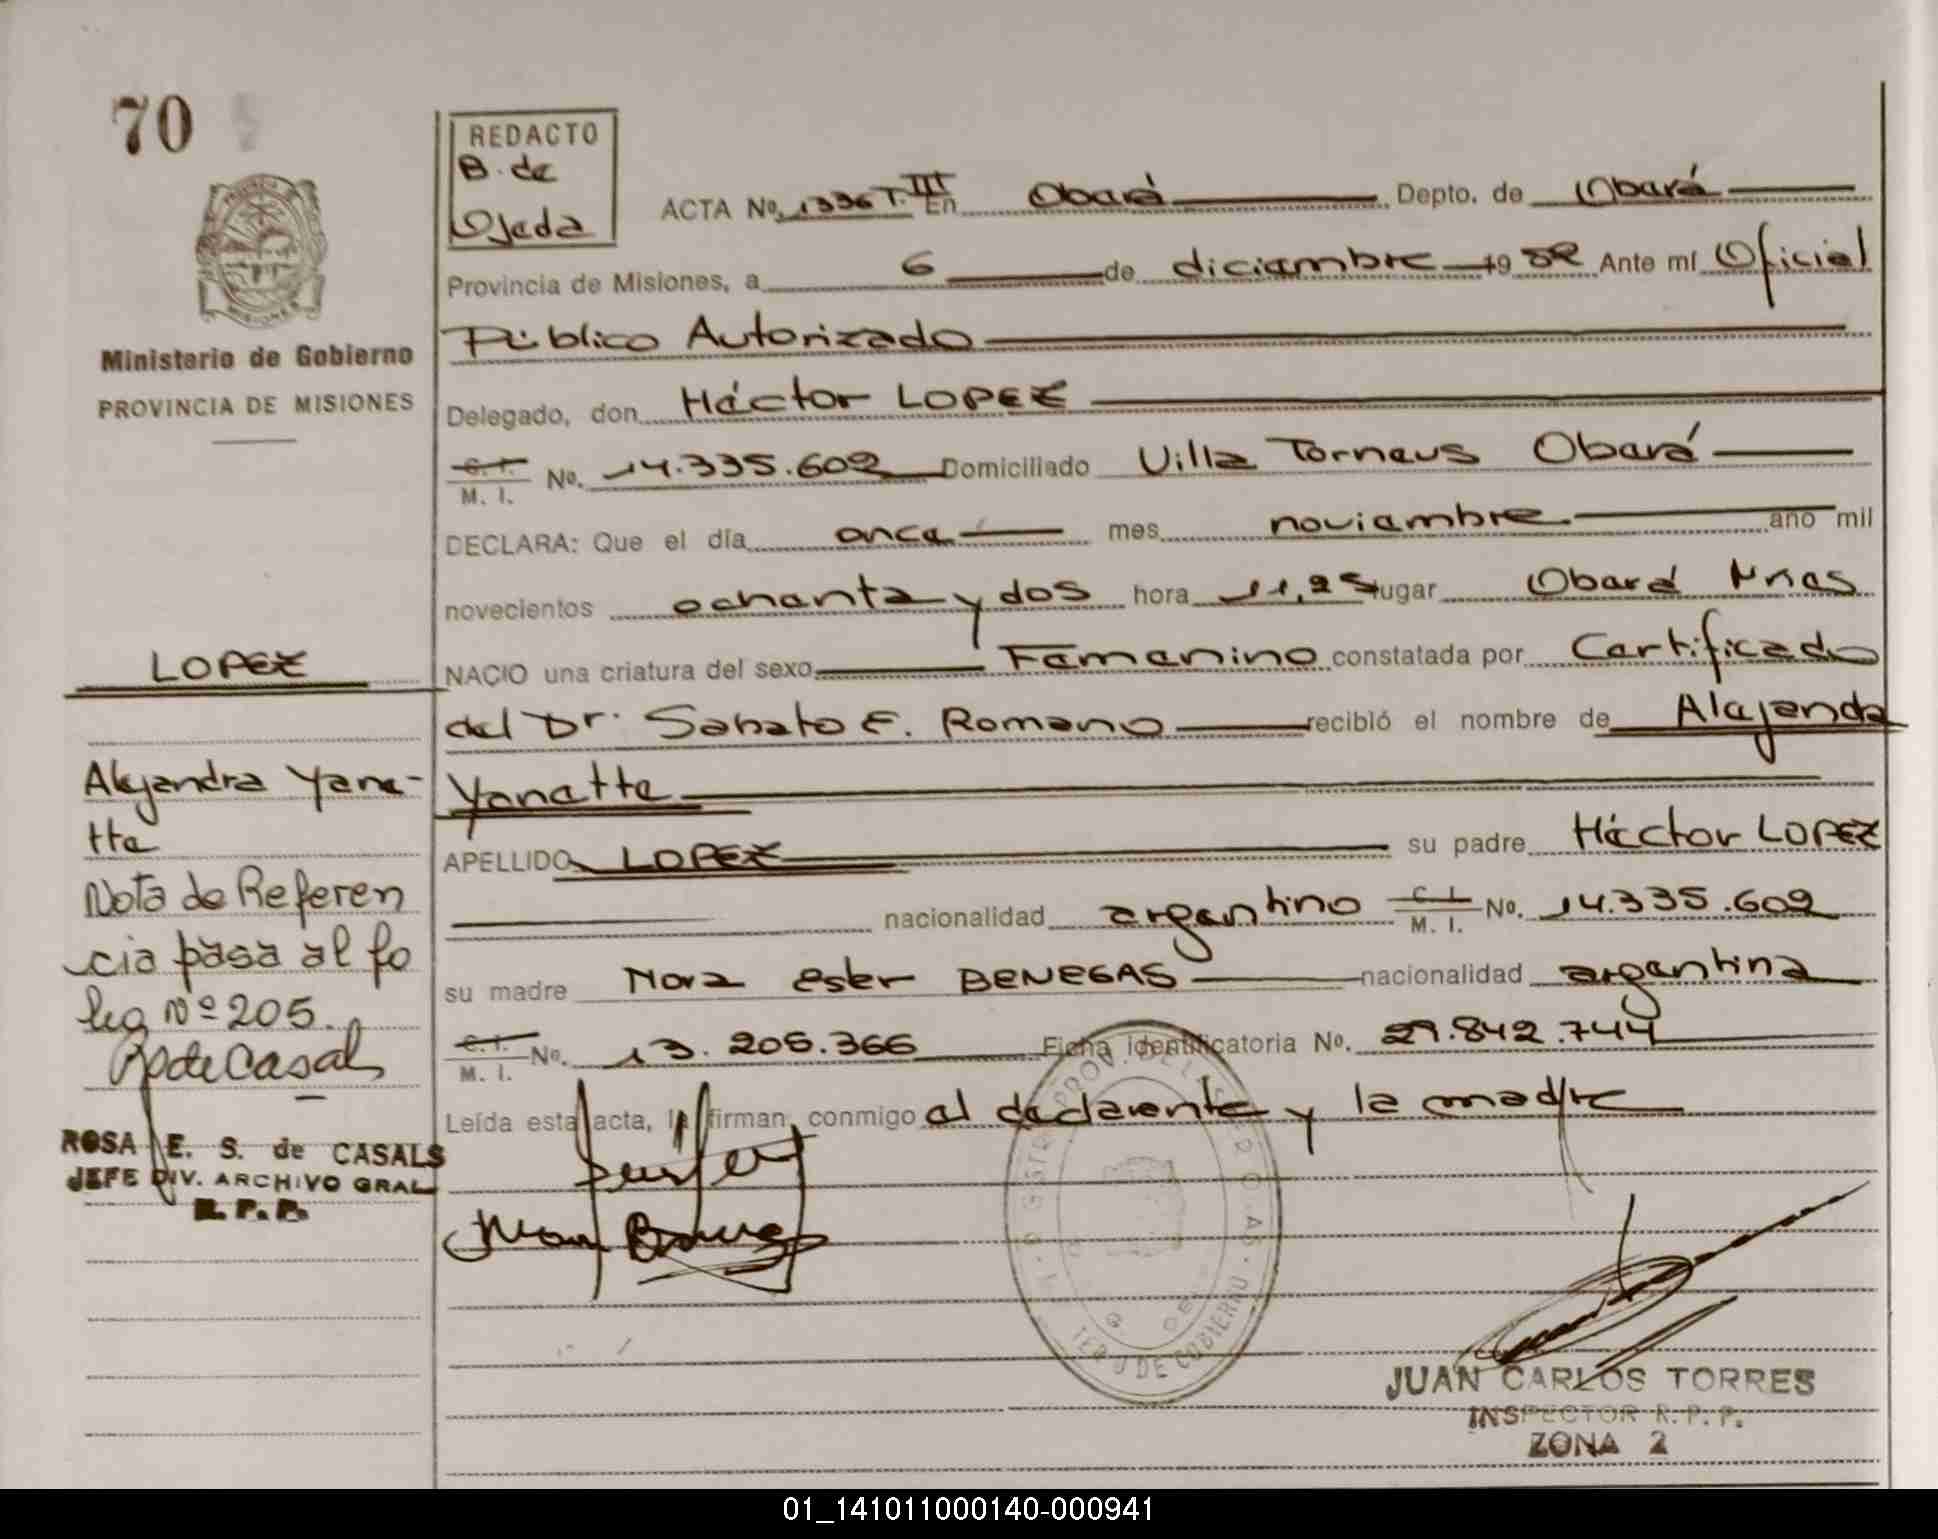 70
REDACTO
B. de
Ojeda
ACTA No. 1336 T. III En Oberá Depto. de Oberá
Provincia de Misiones, a 6 de diciembre 1982 Ante mí Oficial
Público Autorizado
Ministerio de Gobierno
PROVINCIA DE MISIONES
Delegado, don Héctor LOPEZ
C. I. M. I. No. 14.335.609 Domiciliado Villa Torneus Oberá
DECLARA: Que el día once mes noviembre año mil
novecientos ochenta y dos hora 11,25 lugar Oberá Mnes
NACIO una criatura del sexo Femenino constatada por Certificado
del Dr. Sabato E. Romano recibió el nombre de Alejandra
Yanette
APELLIDO LOPEZ su padre Héctor LOPEZ
nacionalidad argentino C. I. M. I. No. 14.335.609
su madre Nora Ester BENEGAS nacionalidad argentina
C. I. M. I. No. 13.205.366 Ficha identificatoria No. 29.842.744
Leída esta acta, la firman conmigo el declarente y la madre
LOPEZ
Alejandra Yane-
tte
Nota de Referen
cia pasa al fo
lio Nº 205.
R de Casals
ROSA E. S. de CASALS
JEFE DIV. ARCHIVO GRAL
R. P. P.
JUAN CARLOS TORRES
INSPECTOR R. P. P.
ZONA 2
01_141011000140-000941